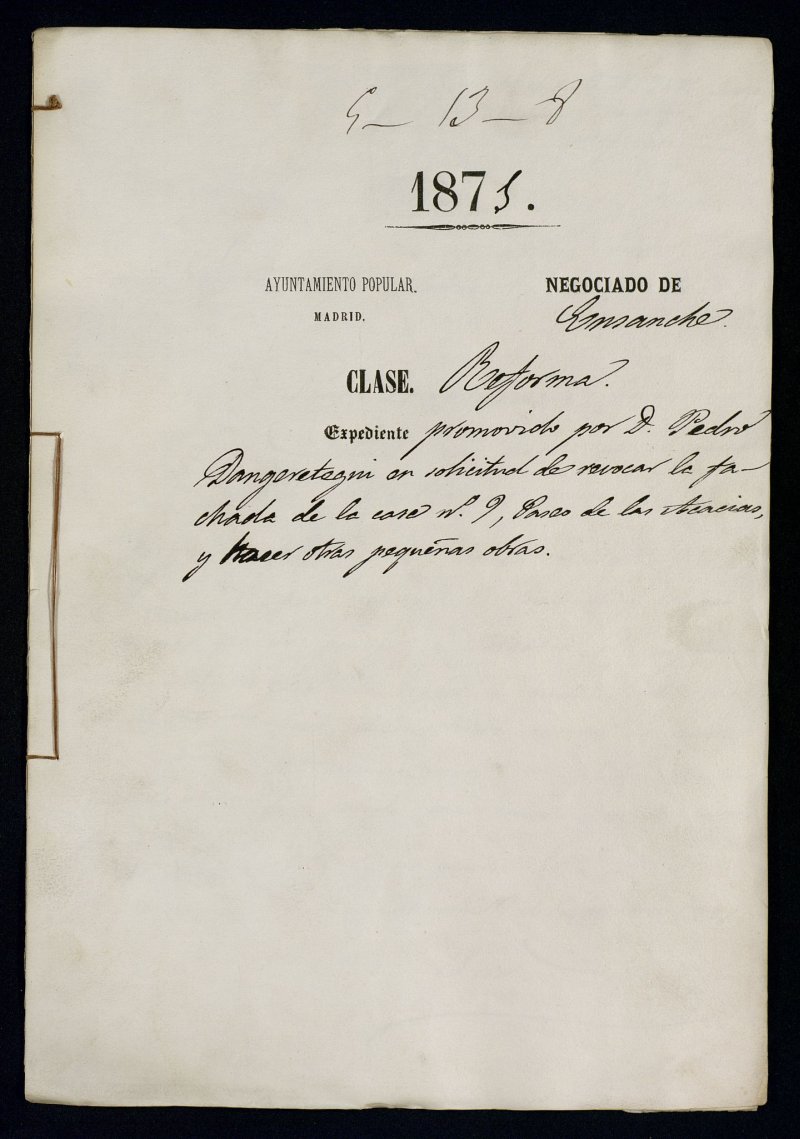 5 - 13 - 8
1875.
AYUNTAMIENTO POPULAR.
MADRID.
NEGOCIADO DE
Ensanche.
CLASE. Reforma.
Expediente promovido por D. Pedro
Dangeretegui en solicitud de revocar la fa-
chada de la casa nº. 9, Paseo de las Acacias,
y hacer otras pequeñas obras.